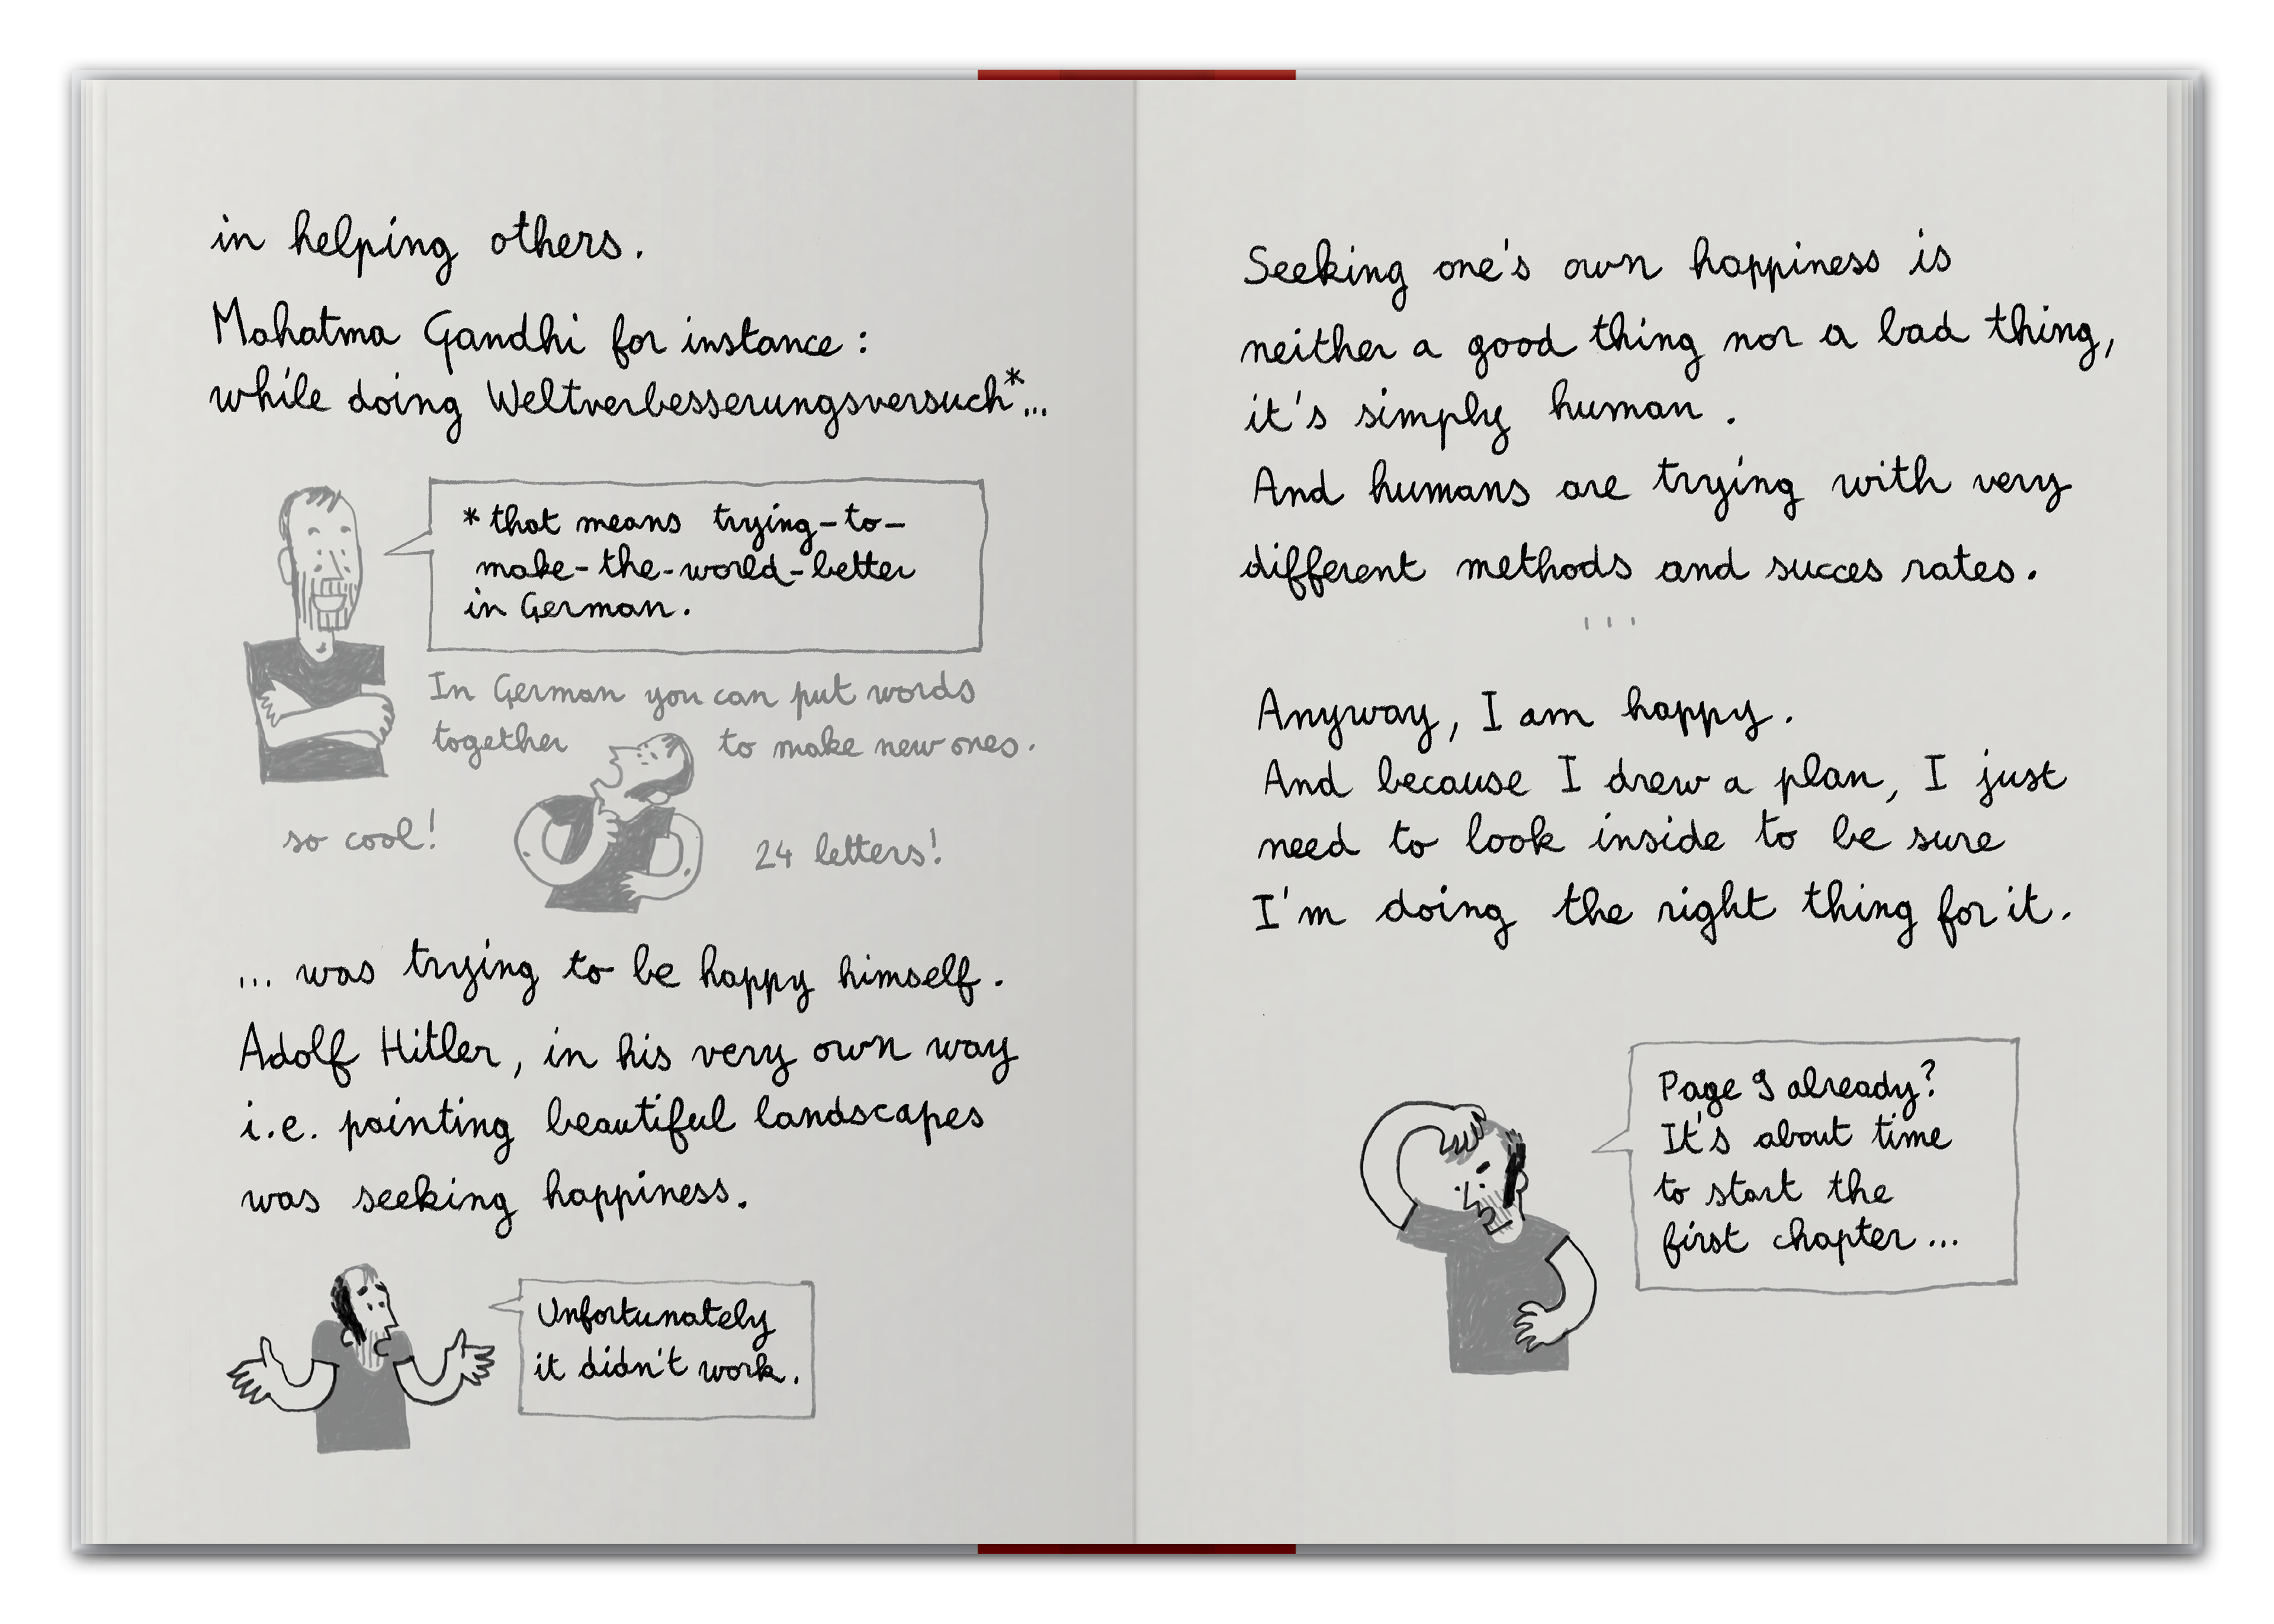 in helping others.
Mahatma Gandhi for instance:
while doing Weltverbesserungsversuch*...
* that means trying-to-
make-the-world-better
in German.
In German you can put words
together to make new ones.
so cool!
24 letters!
... was trying to be happy himself.
Adolf Hitler, in his very own way
i.e. painting beautiful landscapes
was seeking happiness.
Unfortunately
it didn't work.
Seeking one's own happiness is
neither a good thing nor a bad thing,
it's simply human.
And humans are trying with very
different methods and succes rates.
...
Anyway, I am happy.
And because I drew a plan, I just
need to look inside to be sure
I'm doing the right thing for it.
Page 9 already?
It's about time
to start the
first chapter...